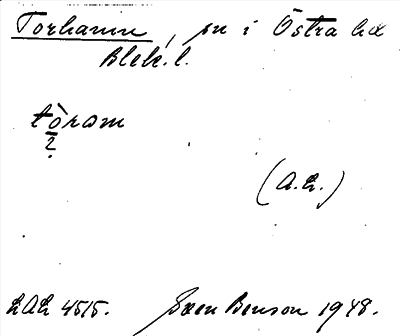 Torhamn, sn i Östra hd
Blek. l.
tòram
2
(A.L.)
LAL 4515. Sven Benson 1948.